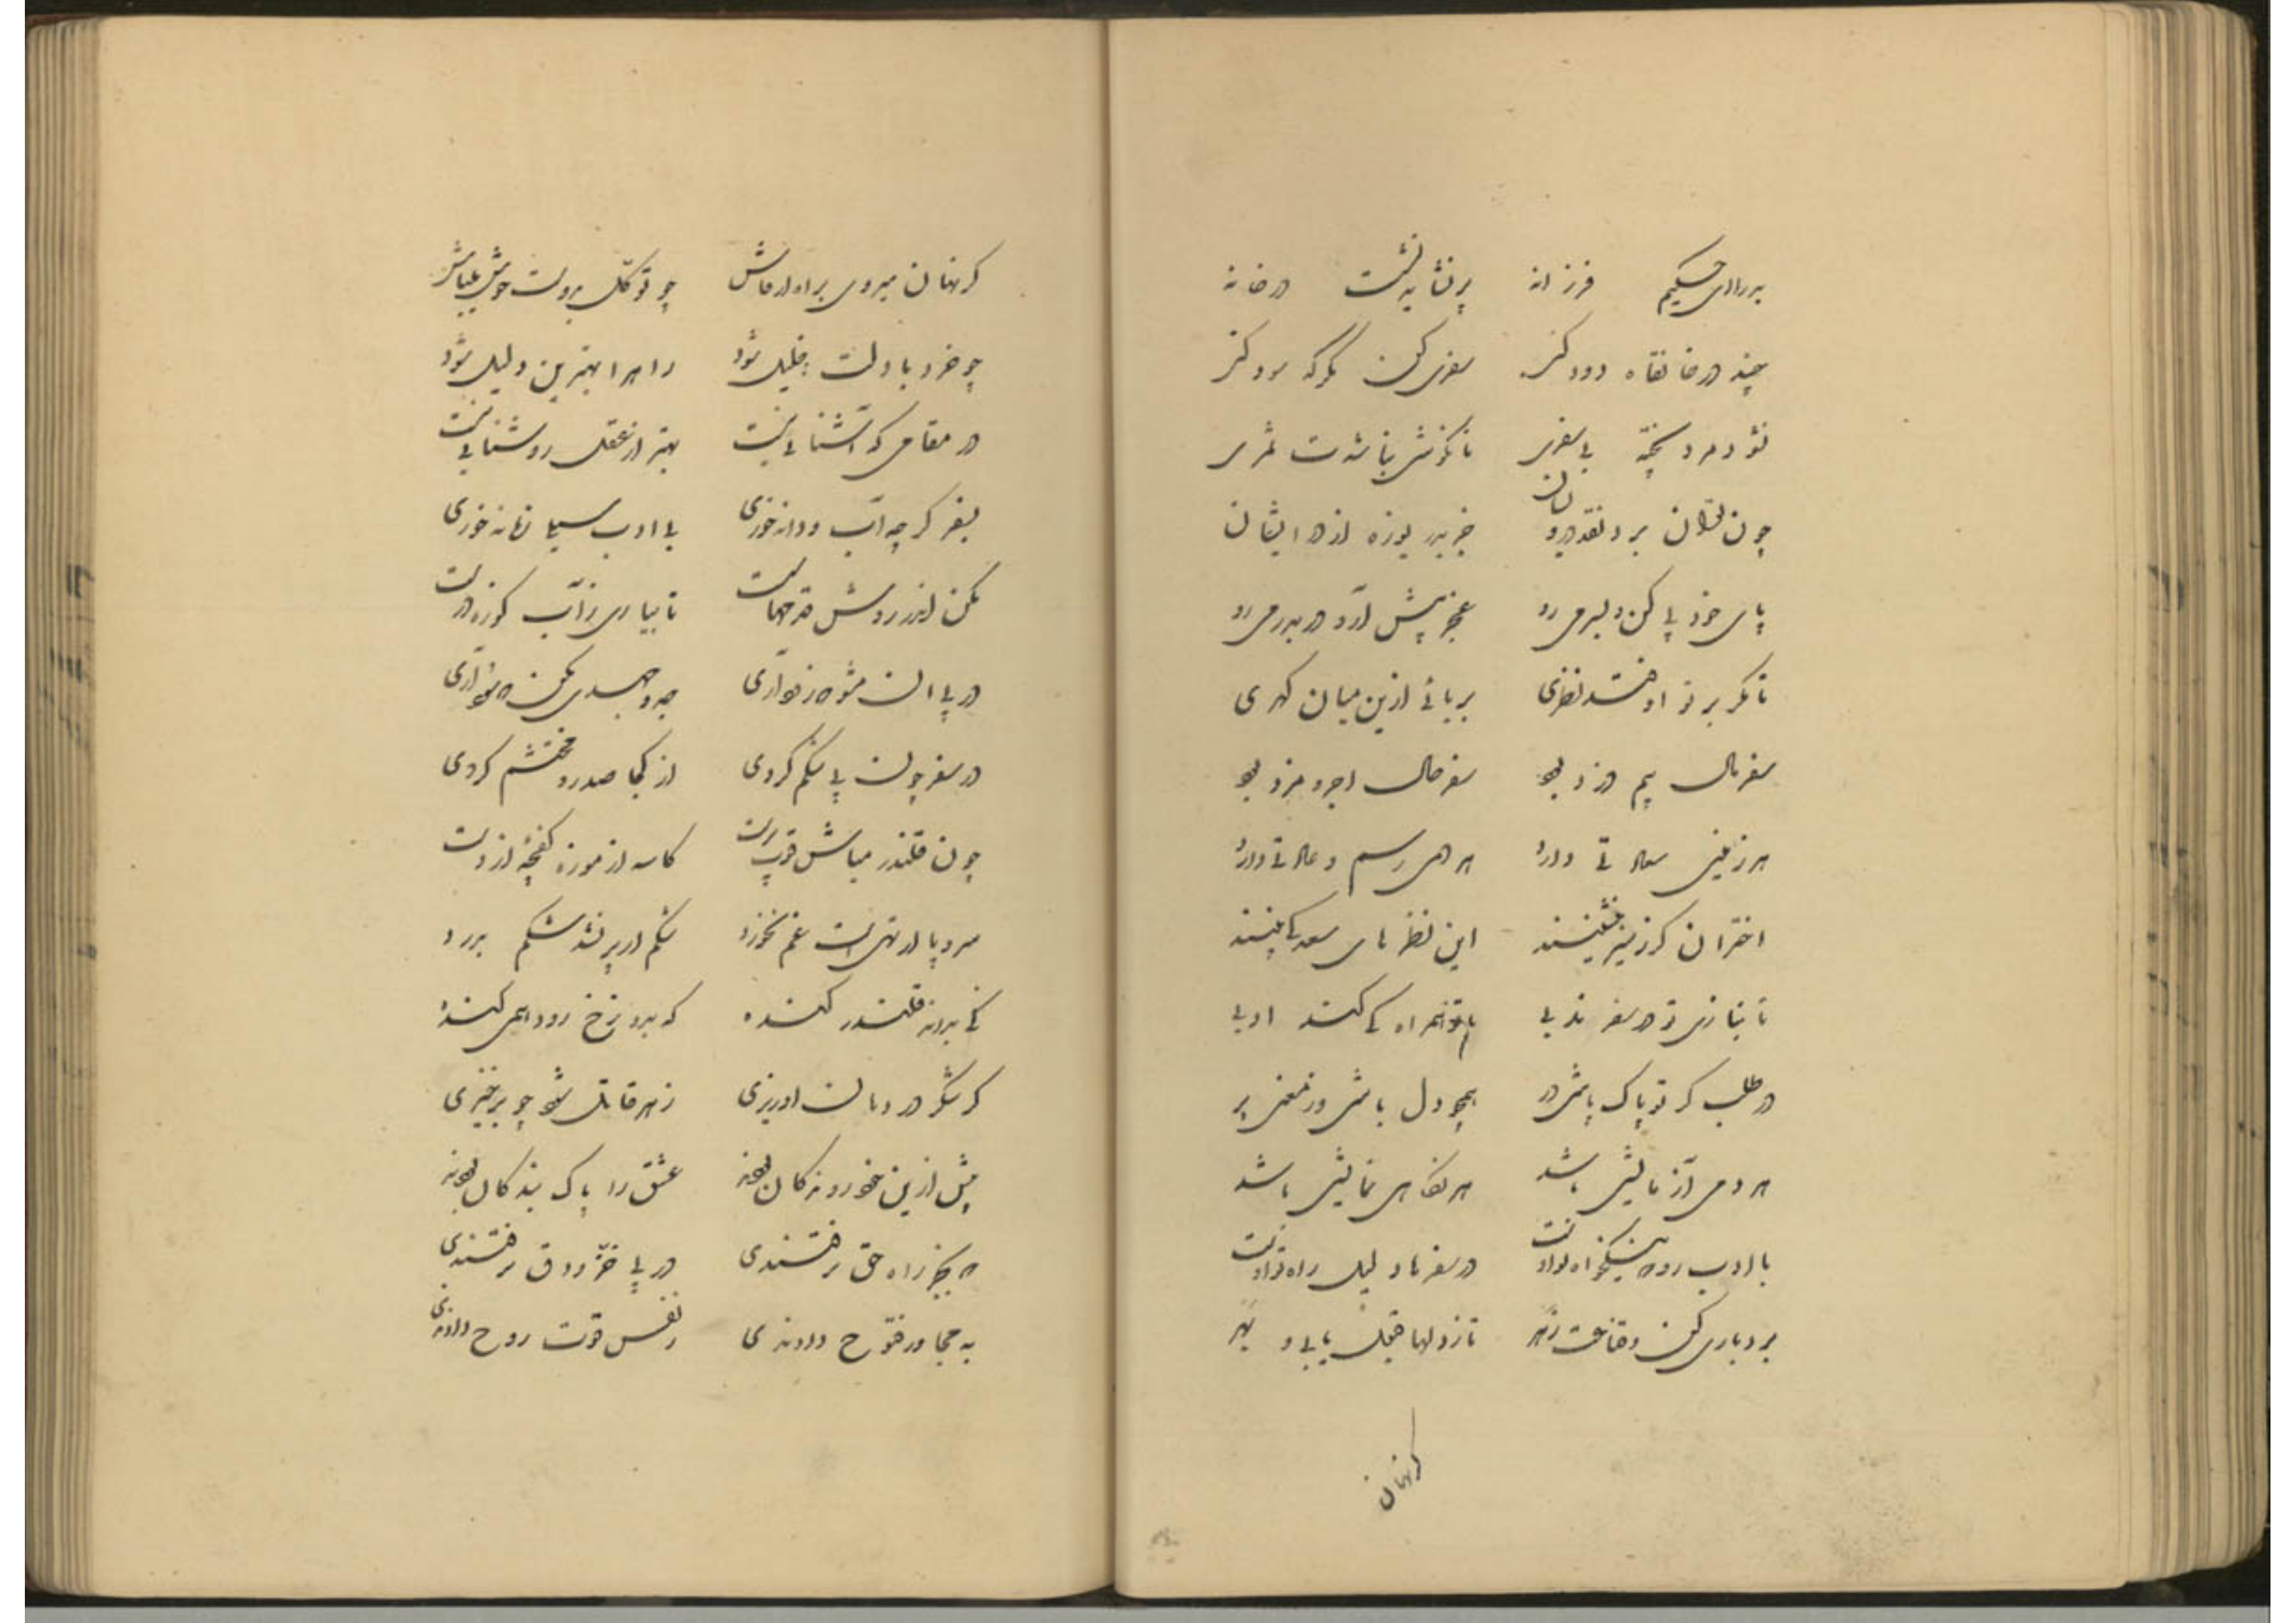 بدرای حکیم فرزانه پر نشاید نشست در خانه
چند در خانقاه دود کنی سفری کن مگر که سود کنی
نشود مرد پخته بی سفری تا نکوشی نباشدت ثمری
چون توان برد نقد درویشان جز بدریوزه از در ایشان
پای خود پی کن و بسر می رو عجز پیش آر و دربدر می رو
تا مگر بر تو اوفتد نظری بربائی ازین میان گهری
سفر مال بیم دزد بود سفر حال اجر و مزد بود
هر زمینی سعادتی دارد هر دهی رسم و عادتی دارد
اختران کز زمین نشینند این نظرهای سعد کی بینند
تا نباری تو در سفر ندبی با تو همراه کی کند ادبی
در طلب گر تو پاک باشی در همچو دل باش و رمضی پر
هر دمی آزمایشی باشد هر نگاهی نمایشی باشد
با ادب رو که نیکخواه تو اوست در سفرها دلیل راه تو اوست
بردباری کن و قناعت و زهر تا ز دلها قبول یابی و بهر
کر نهان
کر نهان میروی براه ارفاش چو توکل بدوست خوش میباش
چو خرد با دلت خلیل شود راهرا بهترین دلیل شود
در مقامی که آشنایی نیست بهتر از عقل روشنایی نیست
بسفر گر چه آب و دانه خوری بی ادب سیلی زمانه خوری
مکن اندر روش مرحمات تا بیاری ز آب کوزه درست
در پی است مشو که زخو آری جهد و جهدی بکن که شو آری
در سفر چون پی شکم گردی از کجا صدر و محتشم گردی
چون قلندر مباش قوت پرست کاسه از موزه کفچه از دست
سر و پا ار تهیست غم نخورد شکم ار پر نشد شکم بدرد
نی برونه قلندر کنده که برد زخ رود همی کنده
گر شکر در دهانت او ریزی زهر قاتل شو چو برخیزی
پیش ازین خود روندگان بودند عشق را پاک بندگان بودند
که بجز راه حق نرفتندی در پی خز و دق نرفتندی
به مجاور فتوح دادندی ز نفس قوت روح دادندی